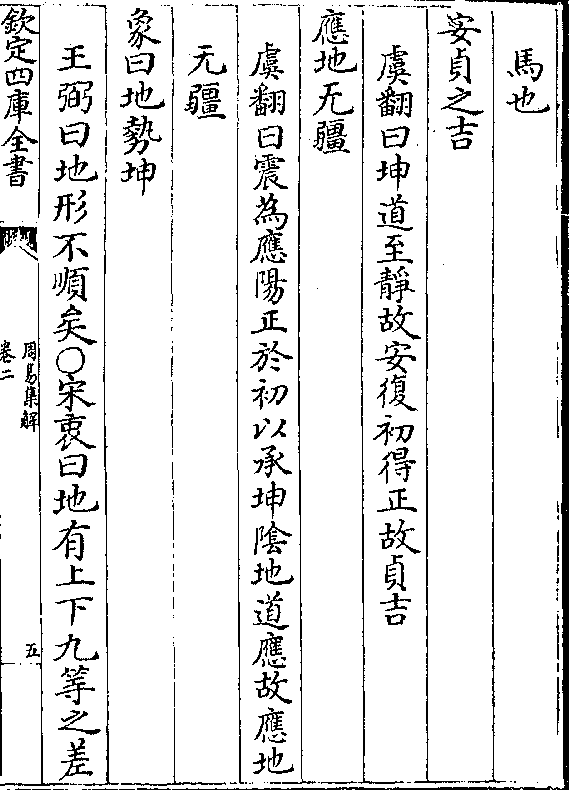 馬也
安貞之吉
虞翻曰坤道至靜故安復初得正故貞吉
應地无疆
虞翻曰震為應陽正於初以承坤陰地道應故應地
无疆
象曰地勢坤
王弼曰地形不順矣○宋衷曰地有上下九等之差
欽定四庫全書
周易集解
卷二
五